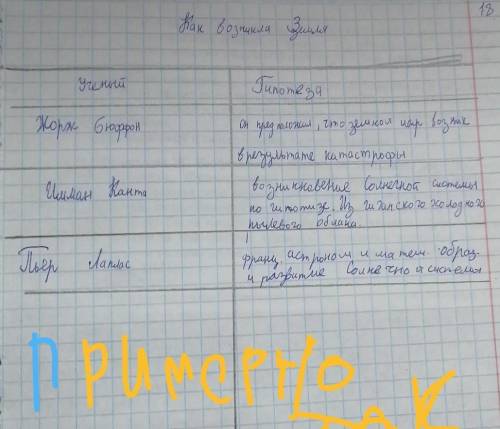 18
Как возникла Земля
Ученый Гипотеза
Жорж Бюффон он предположил, что земной шар возник
в результате катастрофы
Имман Канта возникновение Солнечной системы
по гипотизе. Из гиганского холодного
пылевого облака.
Пьер Лаплас франц. астроном и матем. образ.
и развитие Солнечной системы
Примерно
так